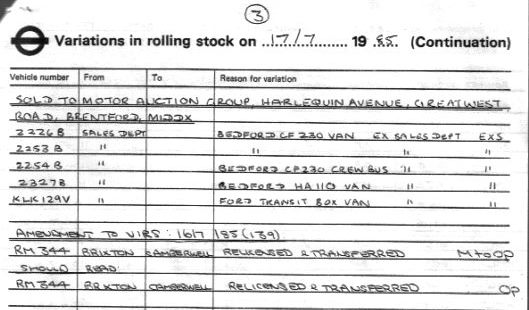 3
Variations in rolling stock on ..17/7........ 19 .85. (Continuation)
Vehicle number From To Reason for variation
SOLD TO MOTOR AUCTION GROUP, HARLEQUIN AVENUE, GREAT WEST
ROAD, BRENTFORD, MIDDX
2226B SALES DEPT BEDFORD CF 230 VAN EX SALES DEPT EXS
2253B " " " "
2254B " BEDFORD CF230 CREW BUS " "
2327B " BEDFORD HA110 VAN " "
KLK129V " FORD TRANSIT BOX VAN " "
AMENDMENT TO VIRS: 16/7/85 (139)
RM 344 BRIXTON CAMBERWELL RELICENSED & TRANSFERRED M to OP
SHOULD READ:
RM 344 BRIXTON CAMBERWELL RELICENSED & TRANSFERRED OP